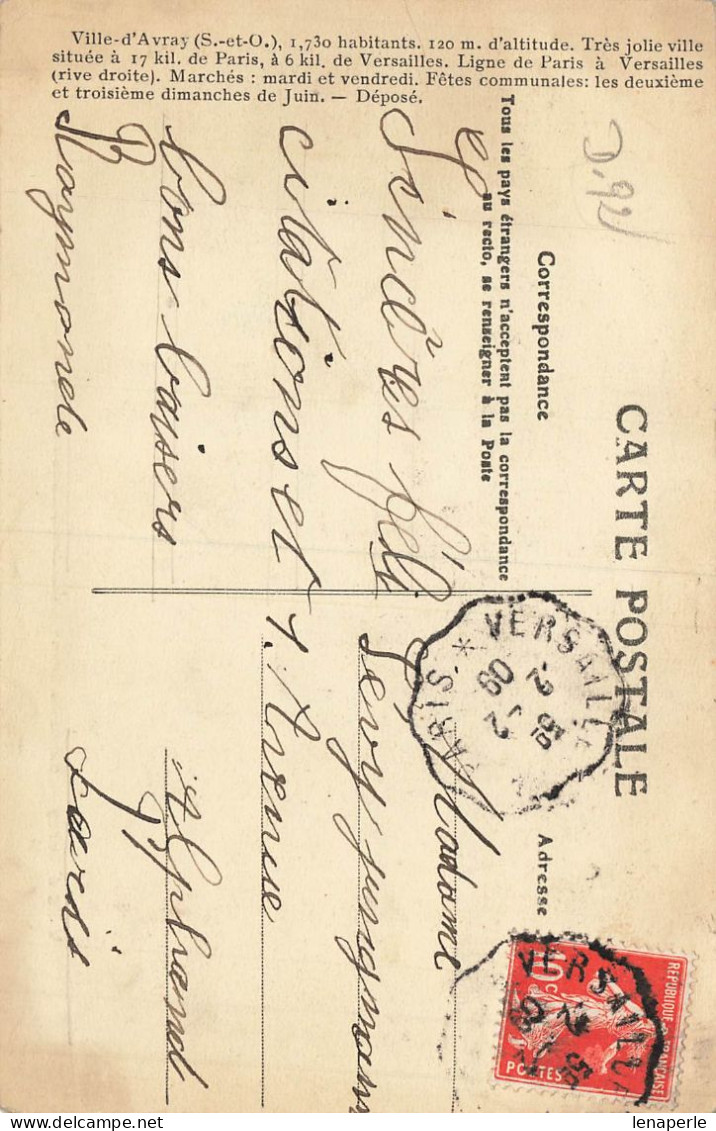 Ville-d'Avray (S.-et-O.), 1,730 habitants. 120 m. d'altitude. Très jolie ville
située à 17 kil. de Paris, à 6 kil. de Versailles. Ligne de Paris à Versailles
(rive droite). Marchés : mardi et vendredi. Fêtes communales: les deuxième
et troisième dimanches de Juin. — Déposé.
D.92
CARTE POSTALE
Correspondance
Tous les pays étrangers n'acceptent pas la correspondance
au recto, se renseigner à la Poste
Sincères féli
citations et
bons baisers
Raymonde
Adresse
Madame
Levy jungmann
7. Avenue
Alphand
Paris
VERSAILL
PARIS
09
REPUBLIQUE FRANÇAISE
10 c
POSTES
VERSAILL
lenaperle
www.delcampe.net